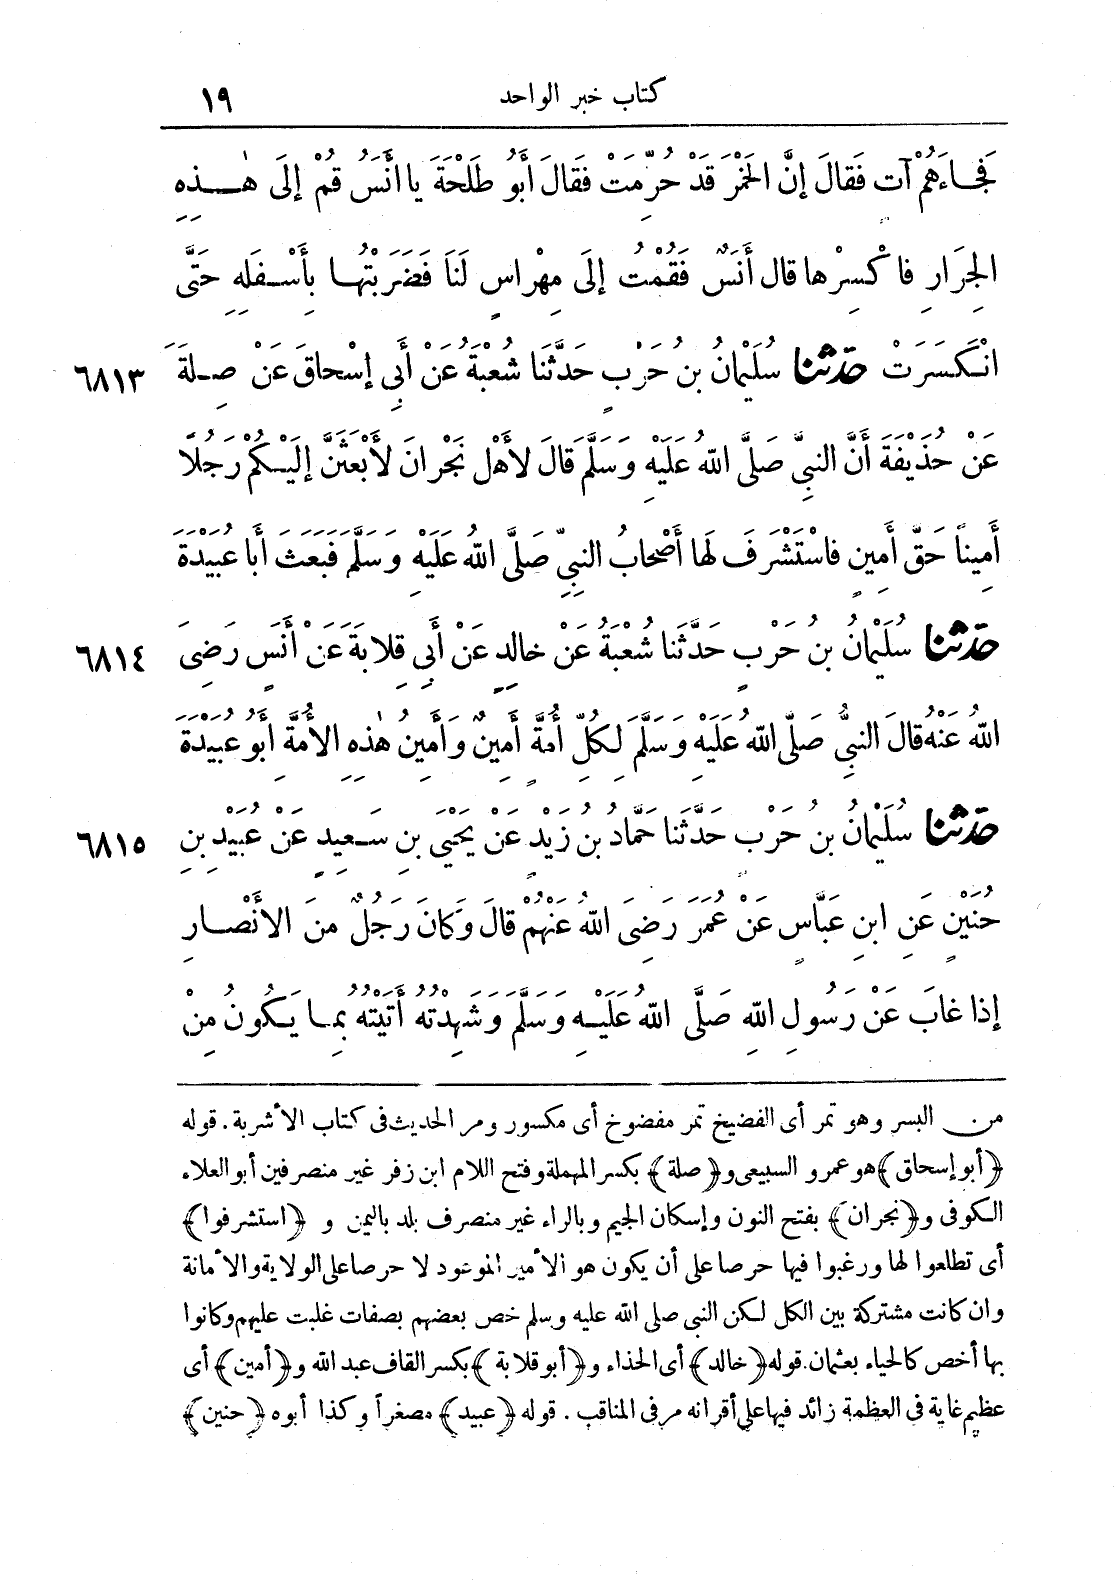 كتاب خبر الواحد ١٩
فَجَاءَهُمْ آتٍ فَقَالَ إِنَّ الْخَمْرَ قَدْ حُرِّمَتْ فَقَالَ أَبُو طَلْحَةَ يَا أَنَسُ قُمْ إِلَى هٰذِهِ
الْجِرَارِ فَاكْسِرْهَا قَالَ أَنَسٌ فَقُمْتُ إِلَى مِهْرَاسٍ لَنَا فَضَرَبْتُهَا بِأَسْفَلِهِ حَتَّى
انْكَسَرَتْ حَدَّثَنَا سُلَيْمَانُ بنُ حَرْبٍ حَدَّثَنَا شُعْبَةُ عَنْ أَبِي إِسْحَاقَ عَنْ صِلَةَ ٦٨١٣
عَنْ حُذَيْفَةَ أَنَّ النبيَّ صَلَّى اللهُ عَلَيْهِ وَسَلَّمَ قَالَ لأَهْلِ نَجْرَانَ لأَبْعَثَنَّ إِلَيْكُمْ رَجُلًا
أَمِينًا حَقَّ أَمِينٍ فَاسْتَشْرَفَ لَهَا أَصْحَابُ النبيِّ صَلَّى اللهُ عَلَيْهِ وَسَلَّمَ فَبَعَثَ أَبَا عُبَيْدَةَ
حَدَّثَنَا سُلَيْمَانُ بنُ حَرْبٍ حَدَّثَنَا شُعْبَةُ عَنْ خَالِدٍ عَنْ أَبِي قِلَابَةَ عَنْ أَنَسٍ رَضِىَ ٦٨١٤
اللهُ عَنْهُ قَالَ النبيُّ صَلَّى اللهُ عَلَيْهِ وَسَلَّمَ لِكُلِّ أُمَّةٍ أَمِينٌ وَأَمِينُ هٰذِهِ الأُمَّةِ أَبُو عُبَيْدَةَ
حَدَّثَنَا سُلَيْمَانُ بنُ حَرْبٍ حَدَّثَنَا حَمَّادُ بنُ زَيْدٍ عَنْ يَحْيَى بنِ سَعِيدٍ عَنْ عُبَيْدِ بنِ ٦٨١٥
حُنَيْنٍ عَنِ ابنِ عَبَّاسٍ عَنْ عُمَرَ رَضِىَ اللهُ عَنْهُمْ قَالَ وَكَانَ رَجُلٌ مِنَ الأَنْصَارِ
إِذَا غَابَ عَنْ رَسُولِ اللهِ صَلَّى اللهُ عَلَيْهِ وَسَلَّمَ وَشَهِدْتُهُ أَتَيْتُهُ بِمَا يَكُونُ مِنْ
من البسر وهو تمر أى الفضيخ تمر مفضوخ أى مكسور ومر الحديث فى كتاب الأشربة . قوله
﴿أبو إسحاق﴾ هو عمرو السبيعى و﴿صلة﴾ بكسر المهملة وفتح اللام ابن زفر غير منصرفين أبو العلاء
الكوفى و﴿نجران﴾ بفتح النون وإسكان الجيم وبالراء غير منصرف بلد باليمن و ﴿استشرفوا﴾
أى تطلعوا لها ورغبوا فيها حرصا على أن يكون هو الأمير الموعود لا حرصا على الولاية والأمانة
وان كانت مشتركة بين الكل لكن النبى صلى الله عليه وسلم خص بعضهم بصفات غلبت عليهم وكانوا
بها أخص كالحياء بعثمان . قوله ﴿خالد﴾ أى الحذاء و﴿أبو قلابة﴾ بكسر القاف عبد الله و﴿أمين﴾ أى
عظيم غاية فى العظمة زائد فيها على أقرانه مر فى المناقب . قوله ﴿عبيد﴾ مصغراً وكذا أبوه ﴿حنين﴾